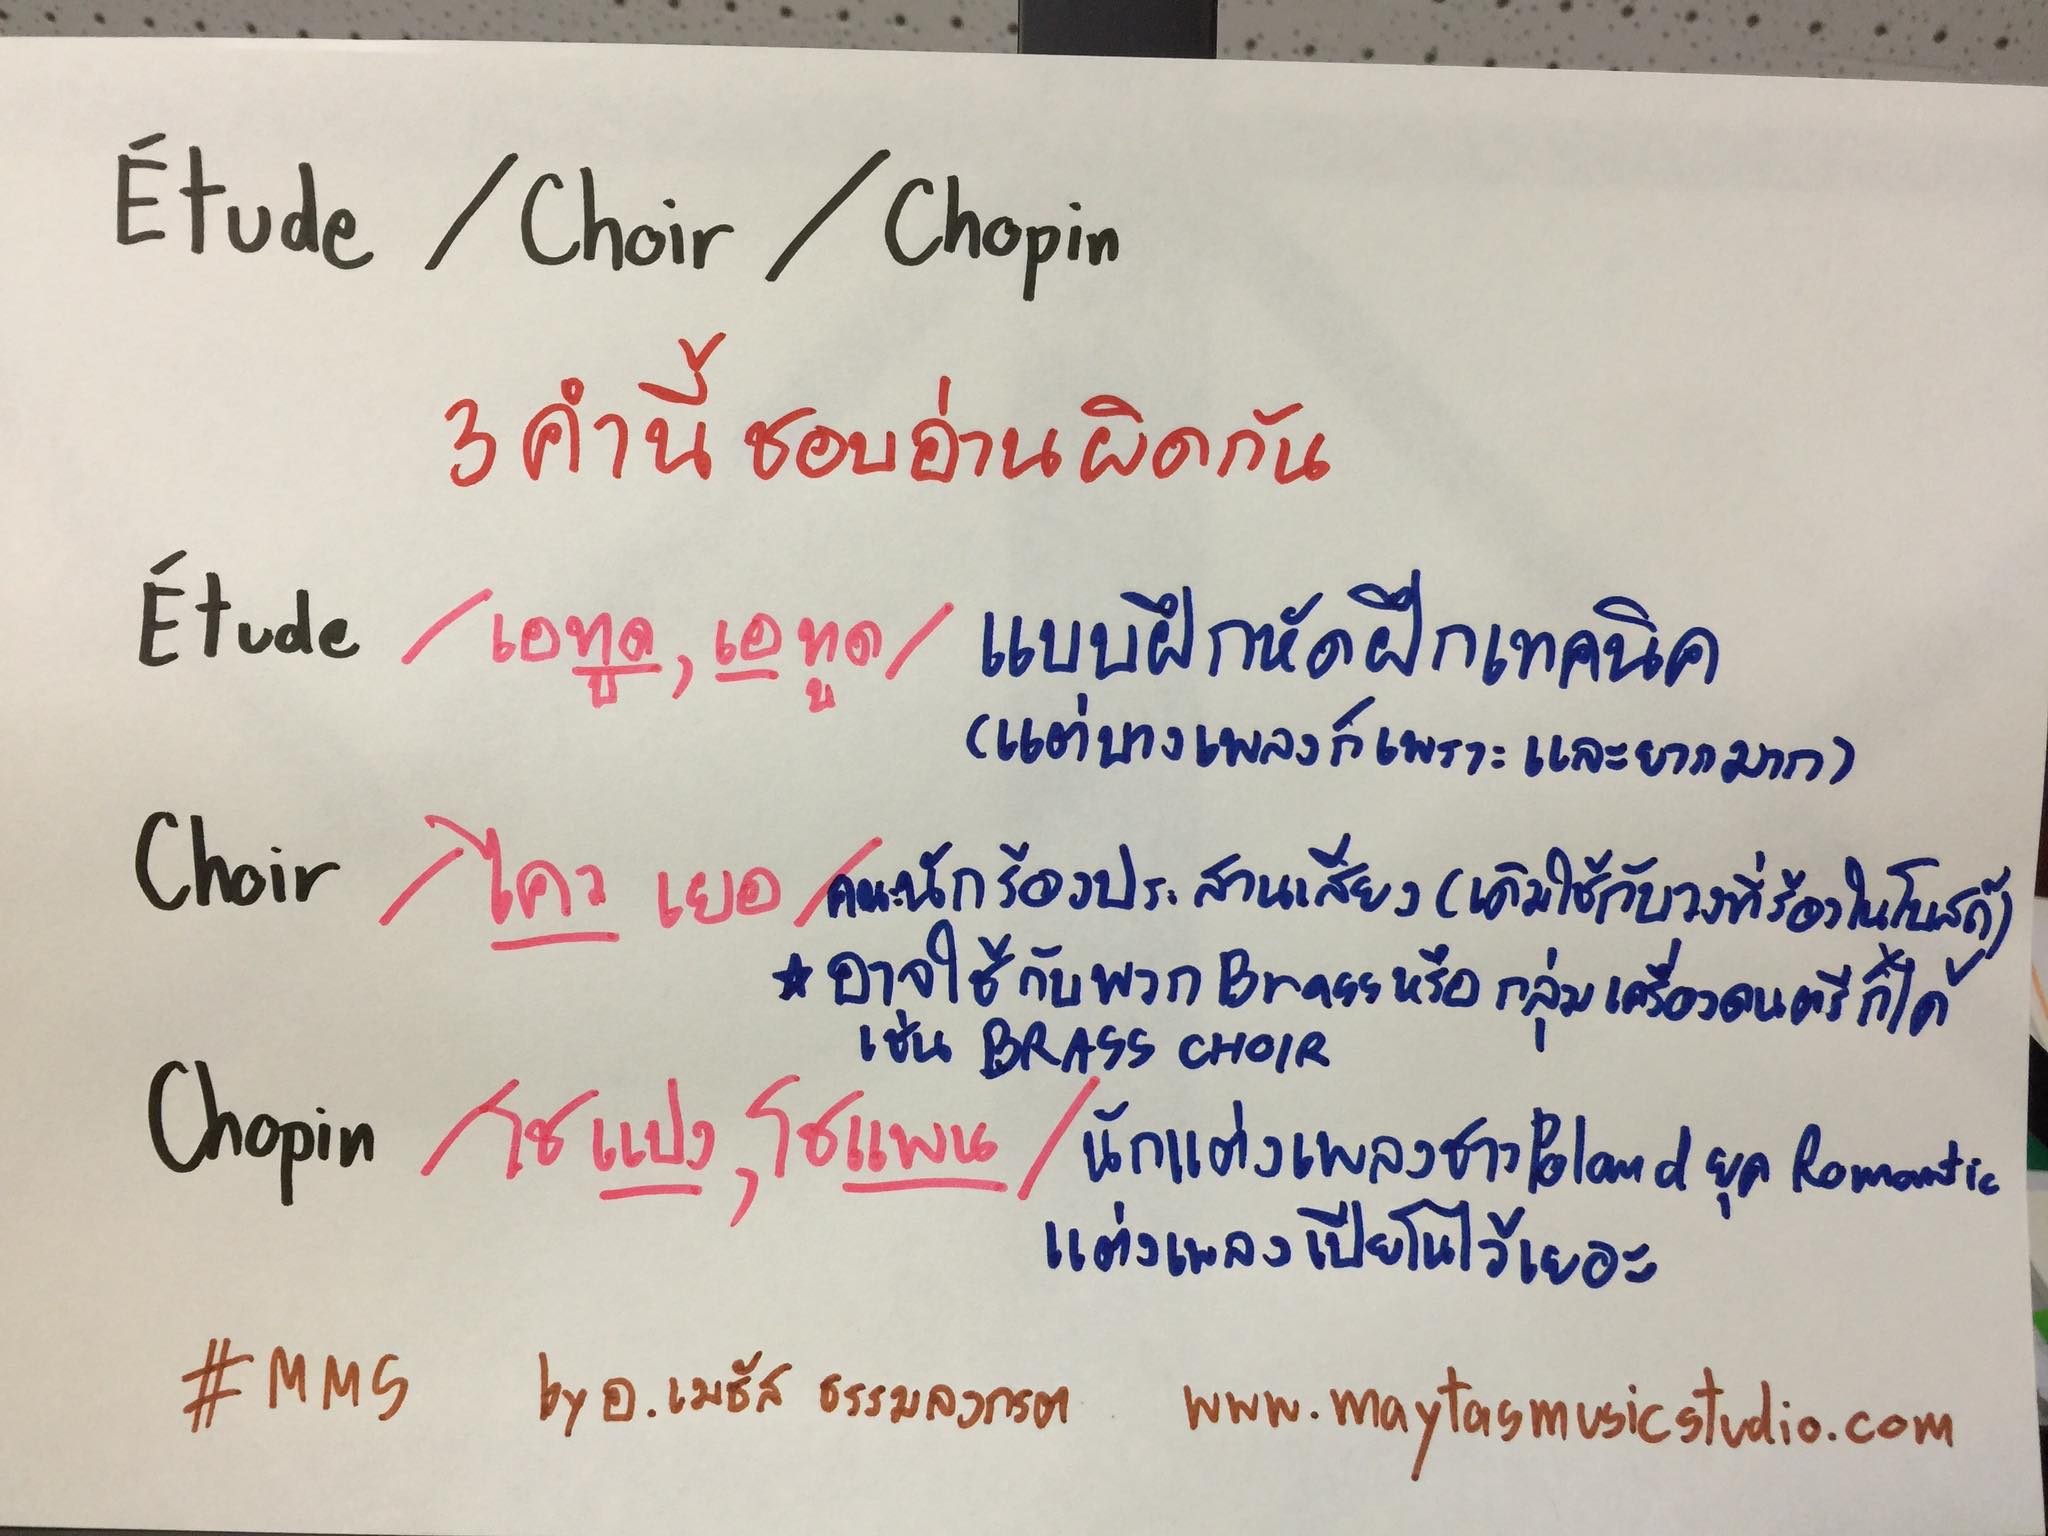 Étude / Choir / Chopin
3 คำนี้ ชอบอ่านผิดกัน
Étude /เอทูด, เอทูด/ แบบฝึกหัดฝึกเทคนิค
(แต่บางเพลงก็เพราะและยากมาก)
Choir /ไคว เยอ/ คณะนักร้องประสานเสียง (เดิมใช้กับวงที่ร้องในโบสถ์)
★ อาจใช้กับพวก Brass หรือ กลุ่มเครื่องดนตรีก็ได้
เช่น BRASS CHOIR
Chopin /โชแปง, โชแพน/ นักแต่งเพลงชาว Poland ยุค Romantic
แต่งเพลงเปียโนไว้เยอะ
#MMS by อ.เมธัส ธรรมลงกรต www.maytasmusicstudio.com